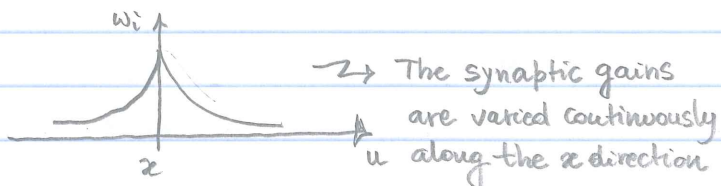 Wi
The synaptic gains
are varied continuously
u along the x direction
x